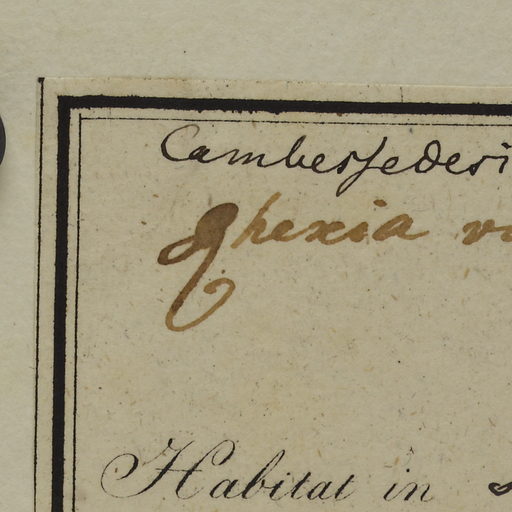 Cambessedesi
Rhexia vi
Habitat in